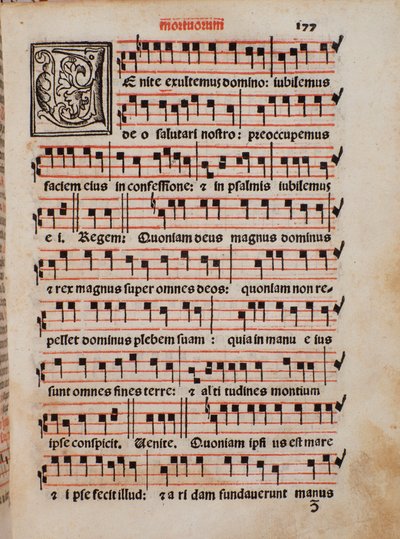 mortuorum 177
VEnite exultemus domino: iubilemus
deo salutari nostro: preoccupemus
faciem eius in confessione: & in psalmis iubilemus
ei. Regem: Quoniam deus magnus dominus
& rex magnus super omnes deos: quoniam non re-
pellet dominus plebem suam: quia in manu eius
sunt omnes fines terre: & altitudines montium
ipse conspicit. Uenite. Quoniam ipsius est mare
& ipse fecit illud: & aridam fundaverunt manus